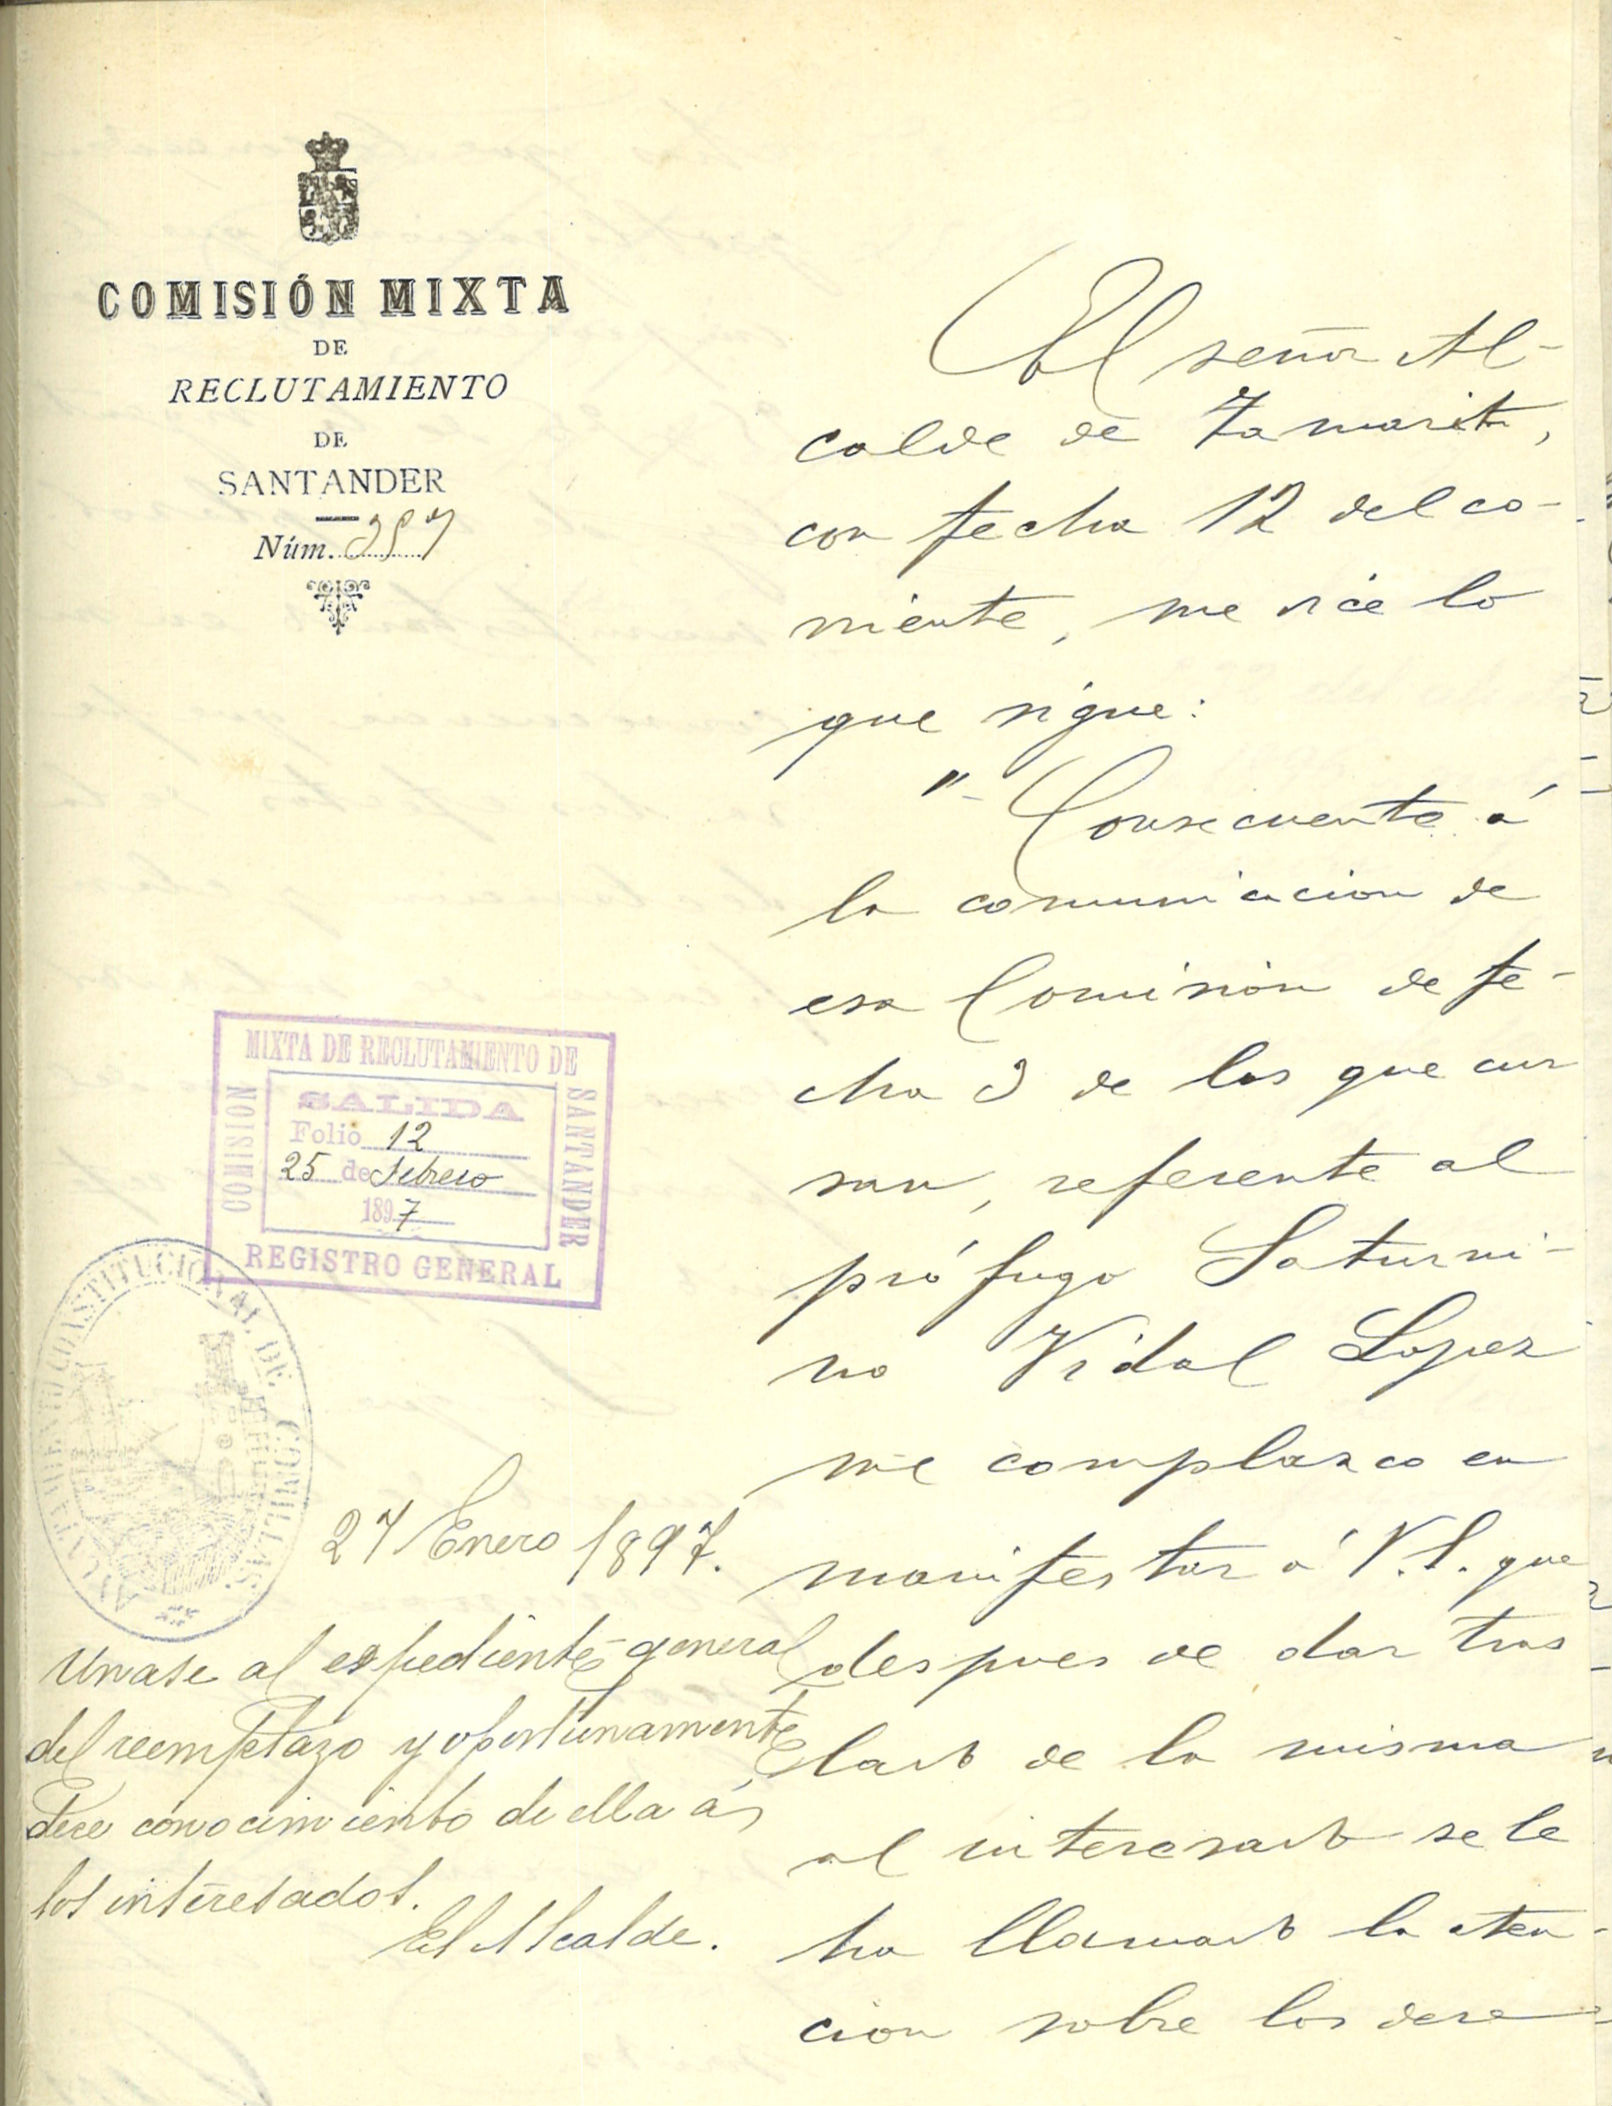 COMISIÓN MIXTA
DE
RECLUTAMIENTO
DE
SANTANDER
Núm. 357
El señor Al-
calde de Tamarite,
con fecha 12 del co-
rriente, me dice lo
que sigue:
"Consecuente á
la comunicacion de
esa Comisión de fe-
cha 3 de los que cur
san, referente al
prófugo Saturni-
no Vidal Lopez
me complazco en
manifestar á V.S. que
despues de dar tras
lado de la misma
al interesado se le
ha llamado la aten-
cion sobre los dere
MIXTA DE RECLUTAMIENTO DE
COMISION
SANTANDER
SALIDA
Folio 12
25 de Febrero
1897
REGISTRO GENERAL
AYUNTAMIENTO CONSTITUCIONAL DE COMILLAS
27 Enero 1897.
Unase al espediente general
del reemplazo y oportunamente
dese conocimiento de ella á
los interesados.
El Alcalde.